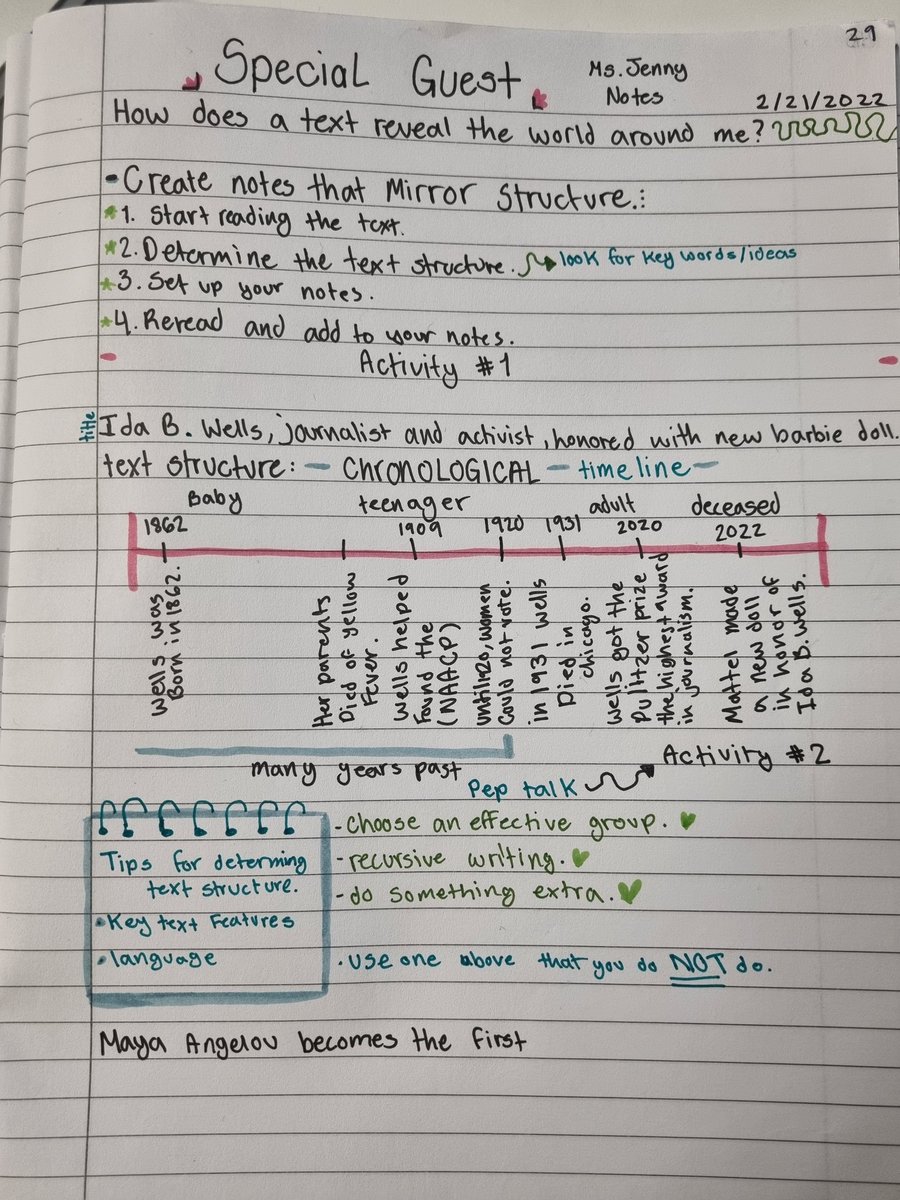 29
Special Guest
Ms. Jenny
Notes
2/21/2022
How does a text reveal the world around me?
- Create notes that Mirror Structure.:
*1. Start reading the text.
*2. Determine the text structure. look for key words/ideas
*3. Set up your notes.
*4. Reread and add to your notes.
Activity #1
title
Ida B. Wells, journalist and activist, honored with new barbie doll.
text structure: - CHRONOLOGICAL - timeline -
Baby teenager adult deceased
1862 1909 1920 1931 2020 2022
Wells was
Born in 1862.
Her parents
Died of yellow
Fever.
Wells helped
found the
(NAACP)
until 1920, women
could not vote.
in 1931 wells
Died in
chicago.
Wells got the
Pulitzer prize
the highest award
in journalism.
Mattel made
a new doll
in honor of
Ida B. Wells.
many years past
Activity #2
Pep talk
- Choose an effective group.
- recursive writing.
- do something extra.
• use one above that you do NOT do.
Tips for determing
text structure.
• Key text Features
• language
Maya Angelou becomes the first